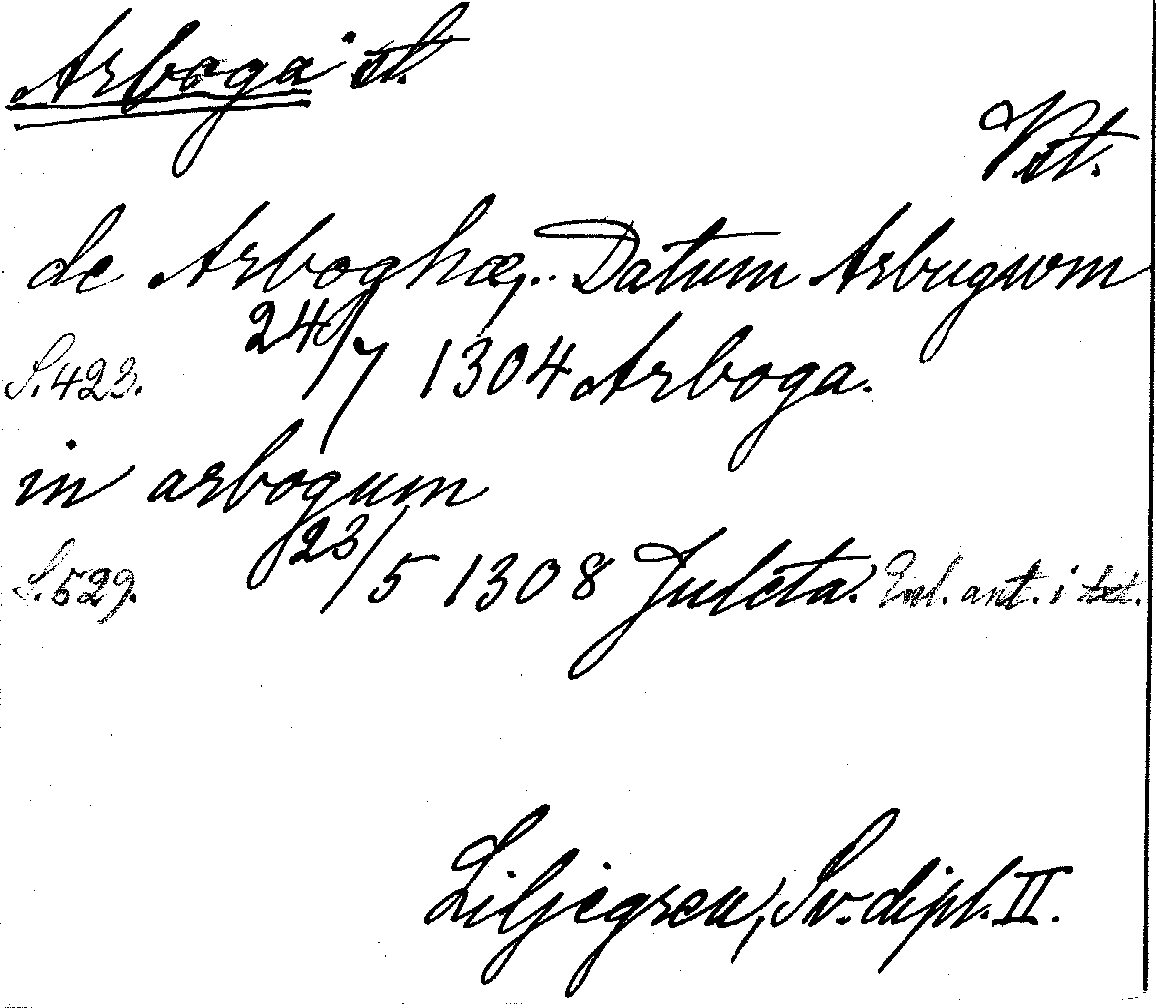 Arboga st.
Vst.
de Arboghæ, .. Datum Arbugwm
S. 423. 24/7 1304 Arboga.
in arbogum
S. 529. 23/5 1308 Juleta. Enl. ant. i txt.
Liljegren, Sv. dipl. II.